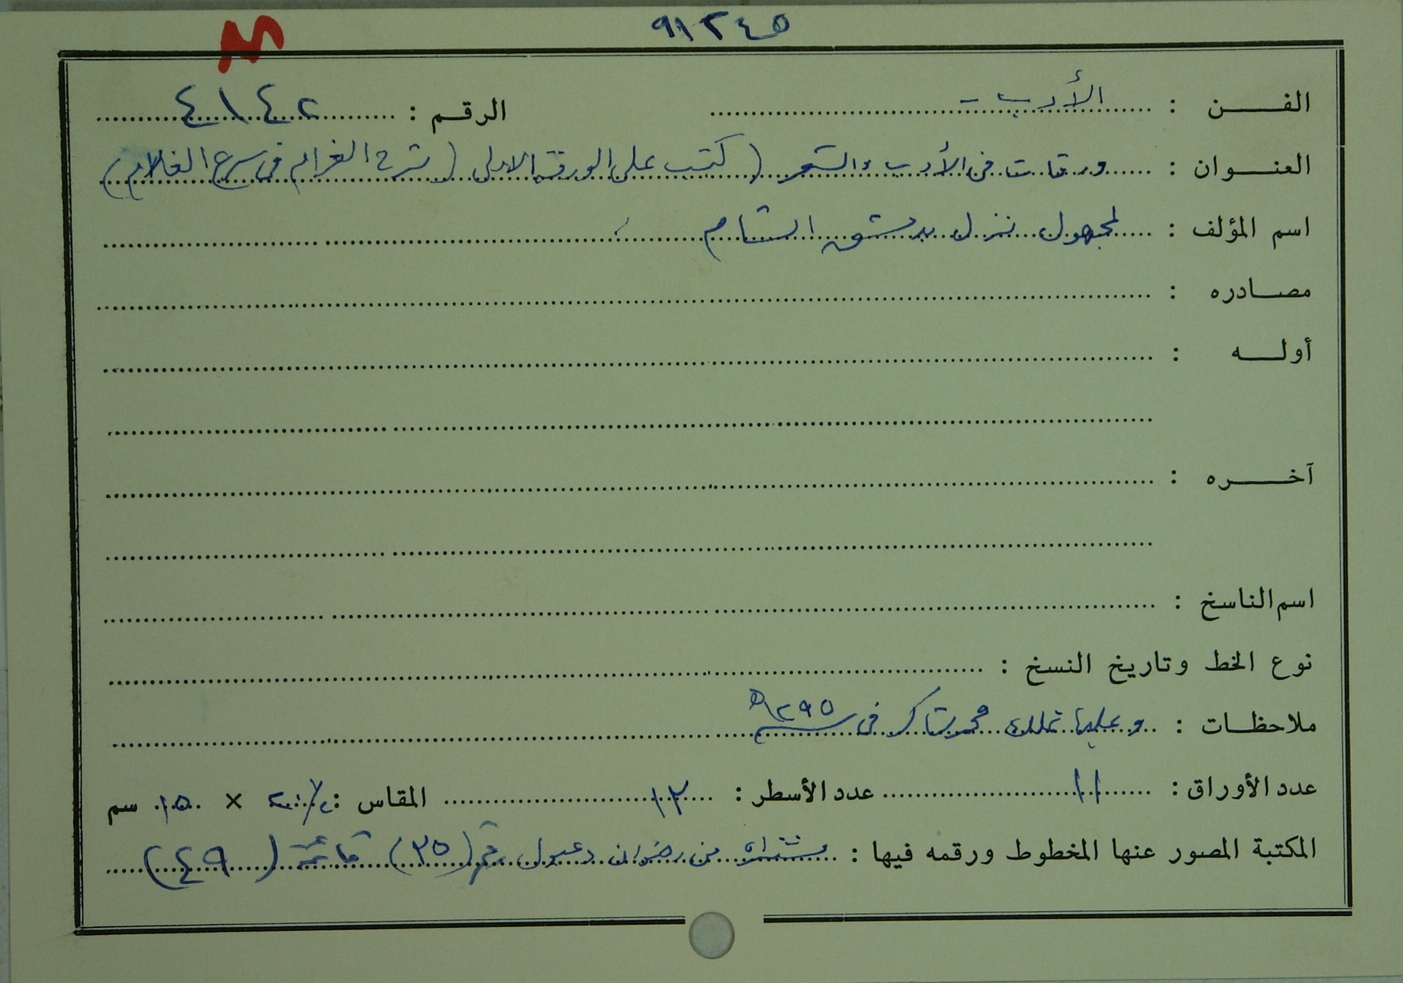 ٩١٢٤٥
الفن : الأدب
الرقم : ٤١٤٢
العنوان : ورقات في الأدب والشعر ( كتب على الورقة الاولى ( شرح الغرام في الغلام )
اسم المؤلف : لمجهول نزل بدمشق الشام
مصادره :
أوله :
آخره :
اسم الناسخ :
نوع الخط وتاريخ النسخ :
ملاحظات : وعليها تملك محمد شاكر في سنة
عدد الأوراق : ١١ عدد الأسطر : ١٣ المقاس : × ١٥ سم
المكتبة المصور عنها المخطوط ورقمه فيها : مشتراه من رضوان دعبول رقم (٢٥) قائمة (٤٩)